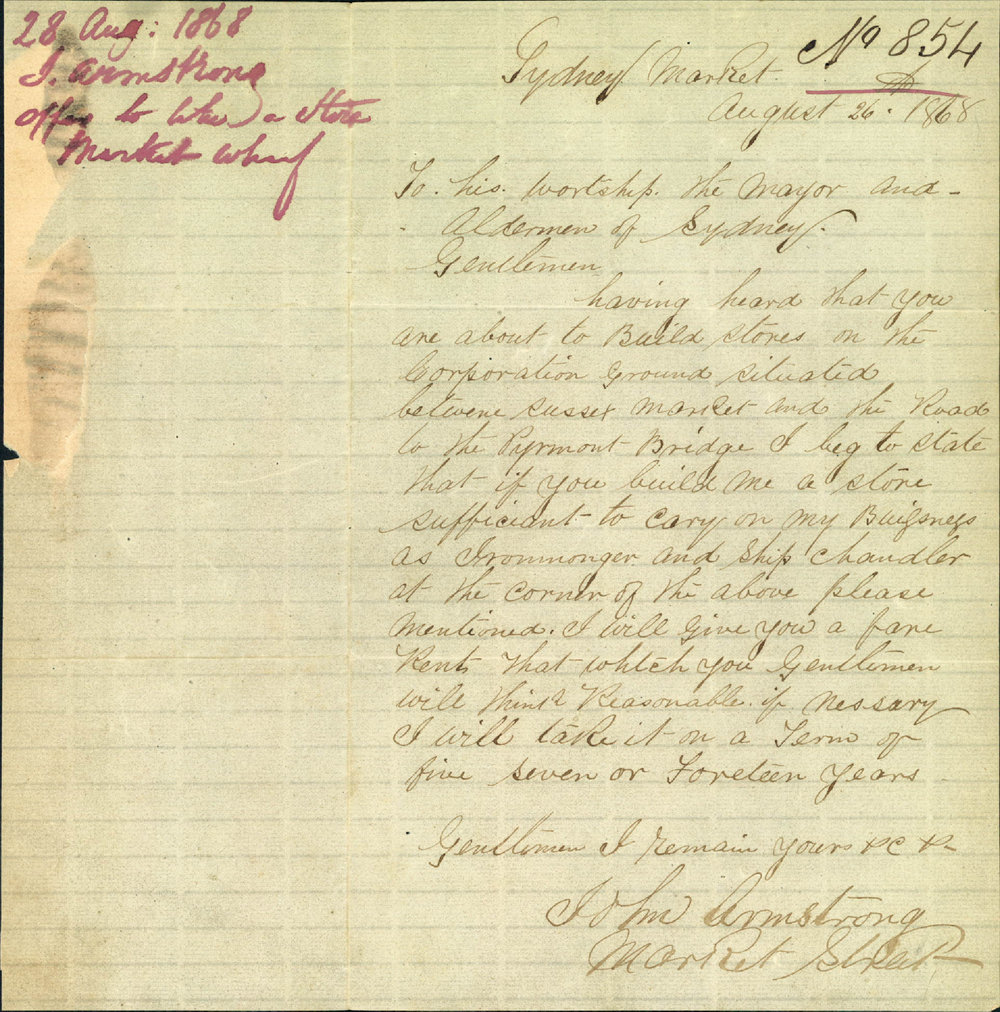 28 Aug: 1868
J. Armstrong
offer to take a Store
Market Wharf
No 854
Sydney Market
August 26. 1868
To. his. wortship. the Mayor and-
Aldermen of Sydney.
Gentlemen
having heard that you
are about to Build stores on the
Corporation Ground situated
betwene Sussex Market and the Road
to the Pyrmont Bridge I beg to state
that if you build me a store
sufficiant to cary on my Buisness
as Ironmonger and Ship Chandler
at the corner of the above please
Mentioned. I will Give you a fare
Rent that which you Gentlemen
will think Reasonable. if nessary
I will take it on a Term of
five seven or Foreteen years
Gentlemen I remain yours &c &
John Armstrong
Market Street